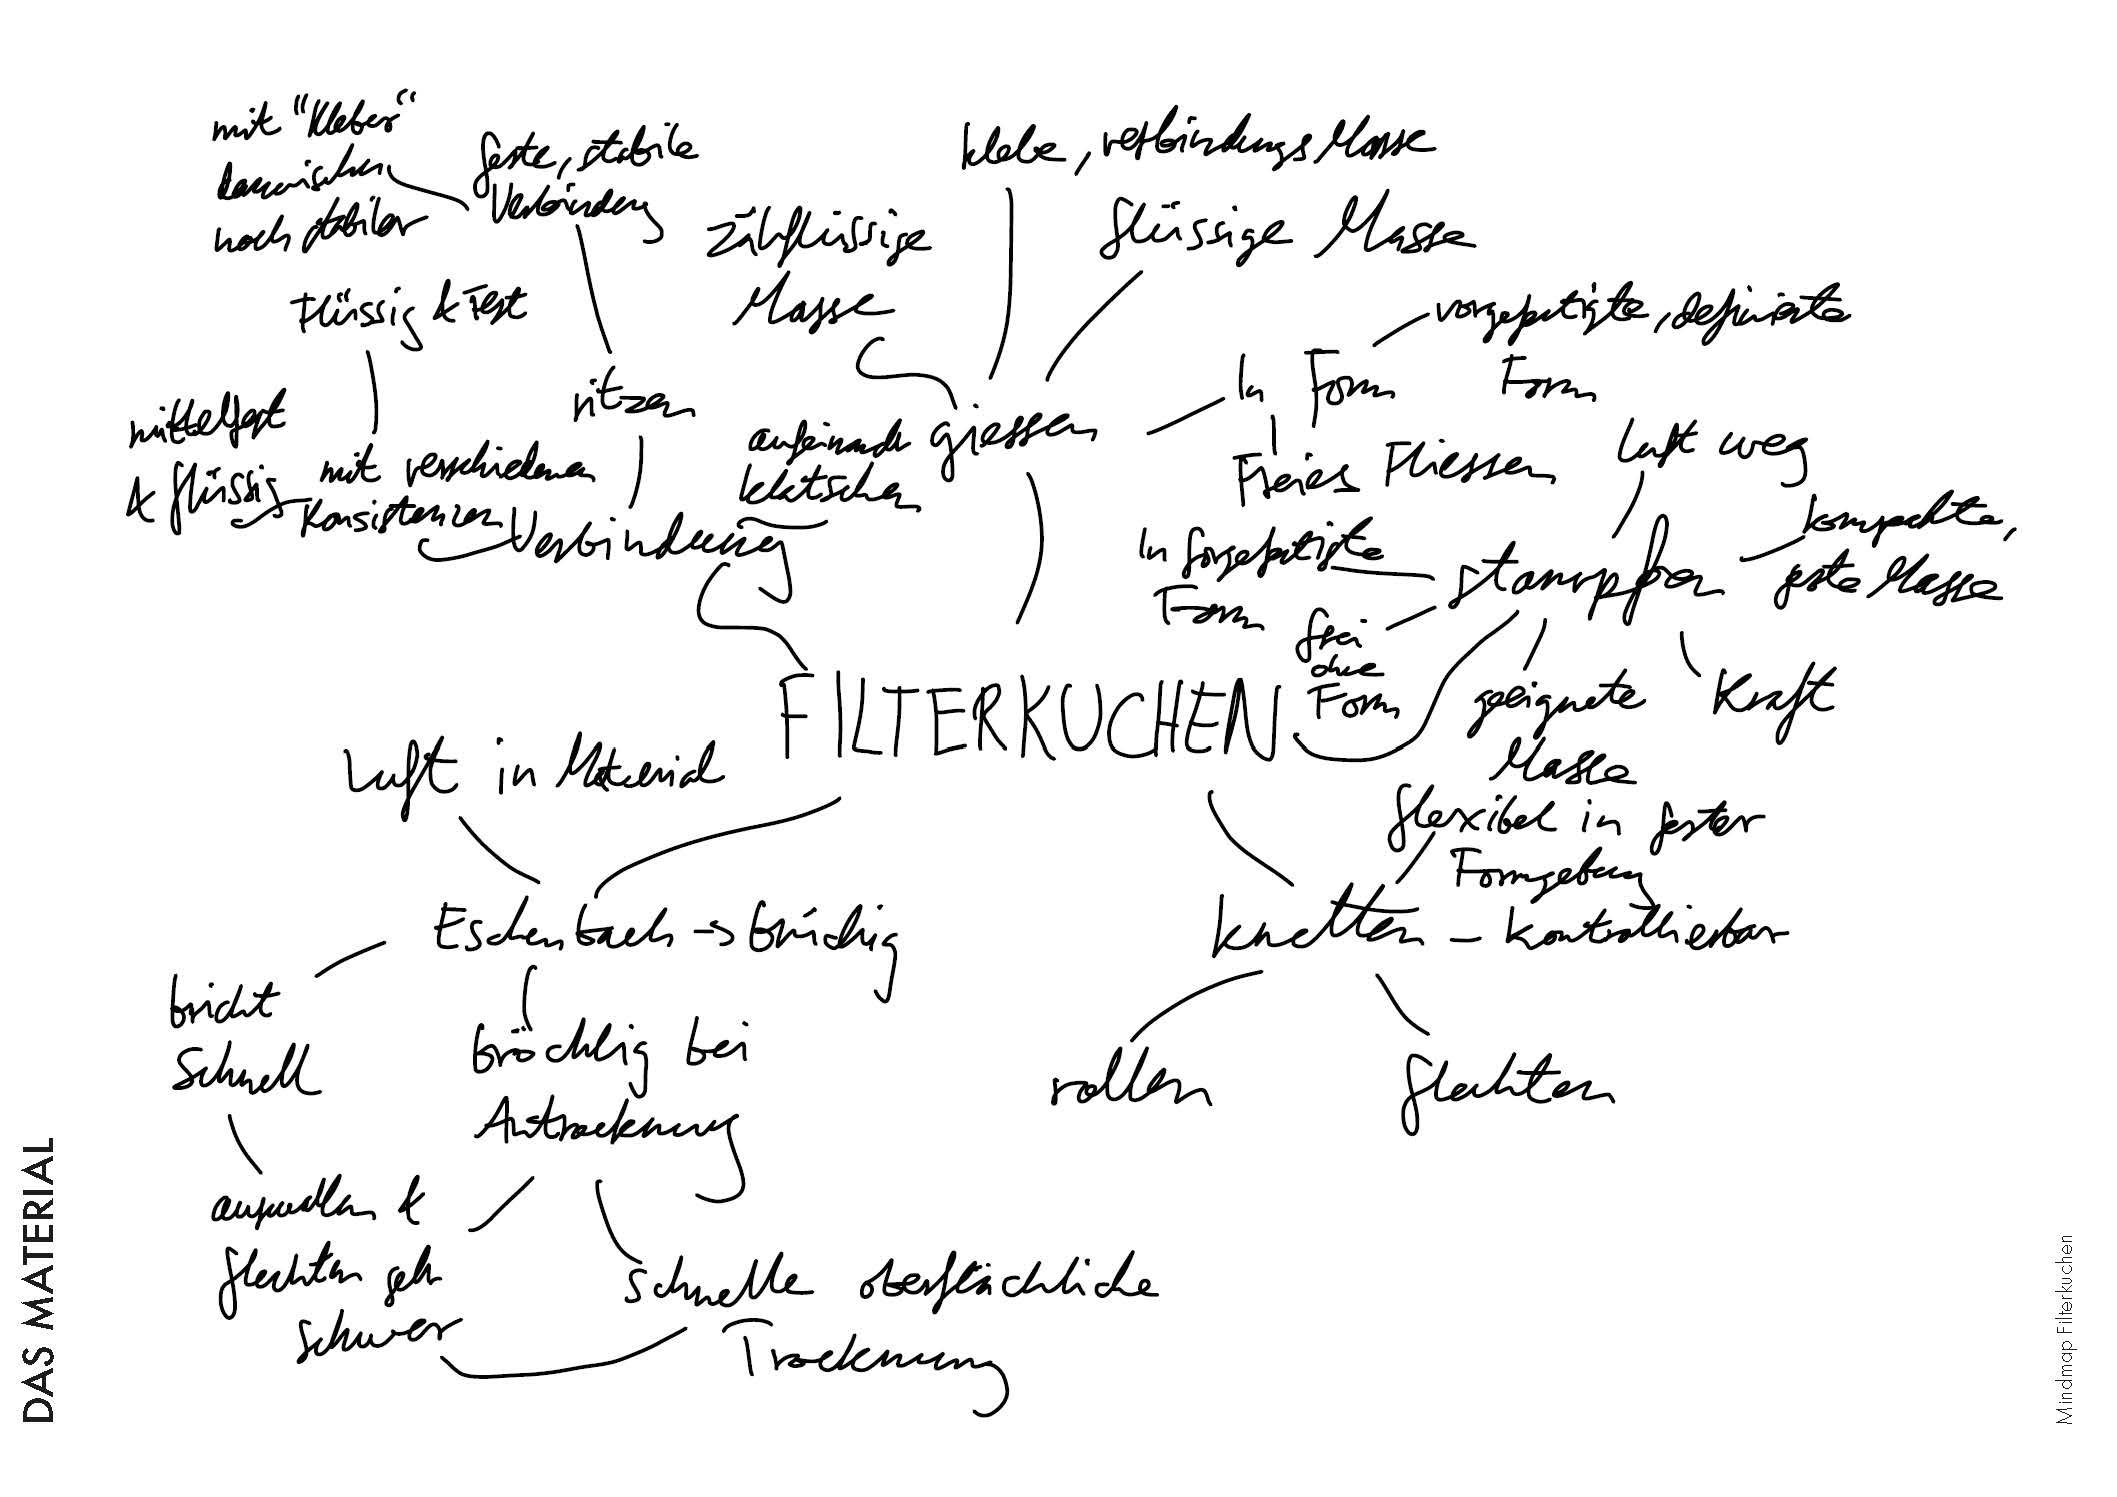 DAS MATERIAL
mit "Kleber"
dazwischen
noch stabiler
feste, stabile
Verbindung
Flüssig & Fest
ritzen
mittelfest
& flüssig
mit verschiedenen
Konsistenzen
Verbindung
aufeinander
klatschen
zähflüssige
Masse
klebe, verbindungs Masse
flüssige Masse
giessen
In Form
vorgefertigte, definierte
Form
Freies Fliessen
Luft weg
kompakte,
feste Masse
stampfen
In forgefertigte
Form
frei
ohne
Form
geeignete
Masse
Kraft
FILTERKUCHEN
Luft in Material
Eschenbach → brüchig
bricht
schnell
bröcklig bei
Antrocknung
auswallen &
flechten geht
schwer
schnelle oberflächliche
Trocknung
flexibel in fester
Formgebung
knetten – kontrollierbar
rollen
flechten
Mindmap Filterkuchen